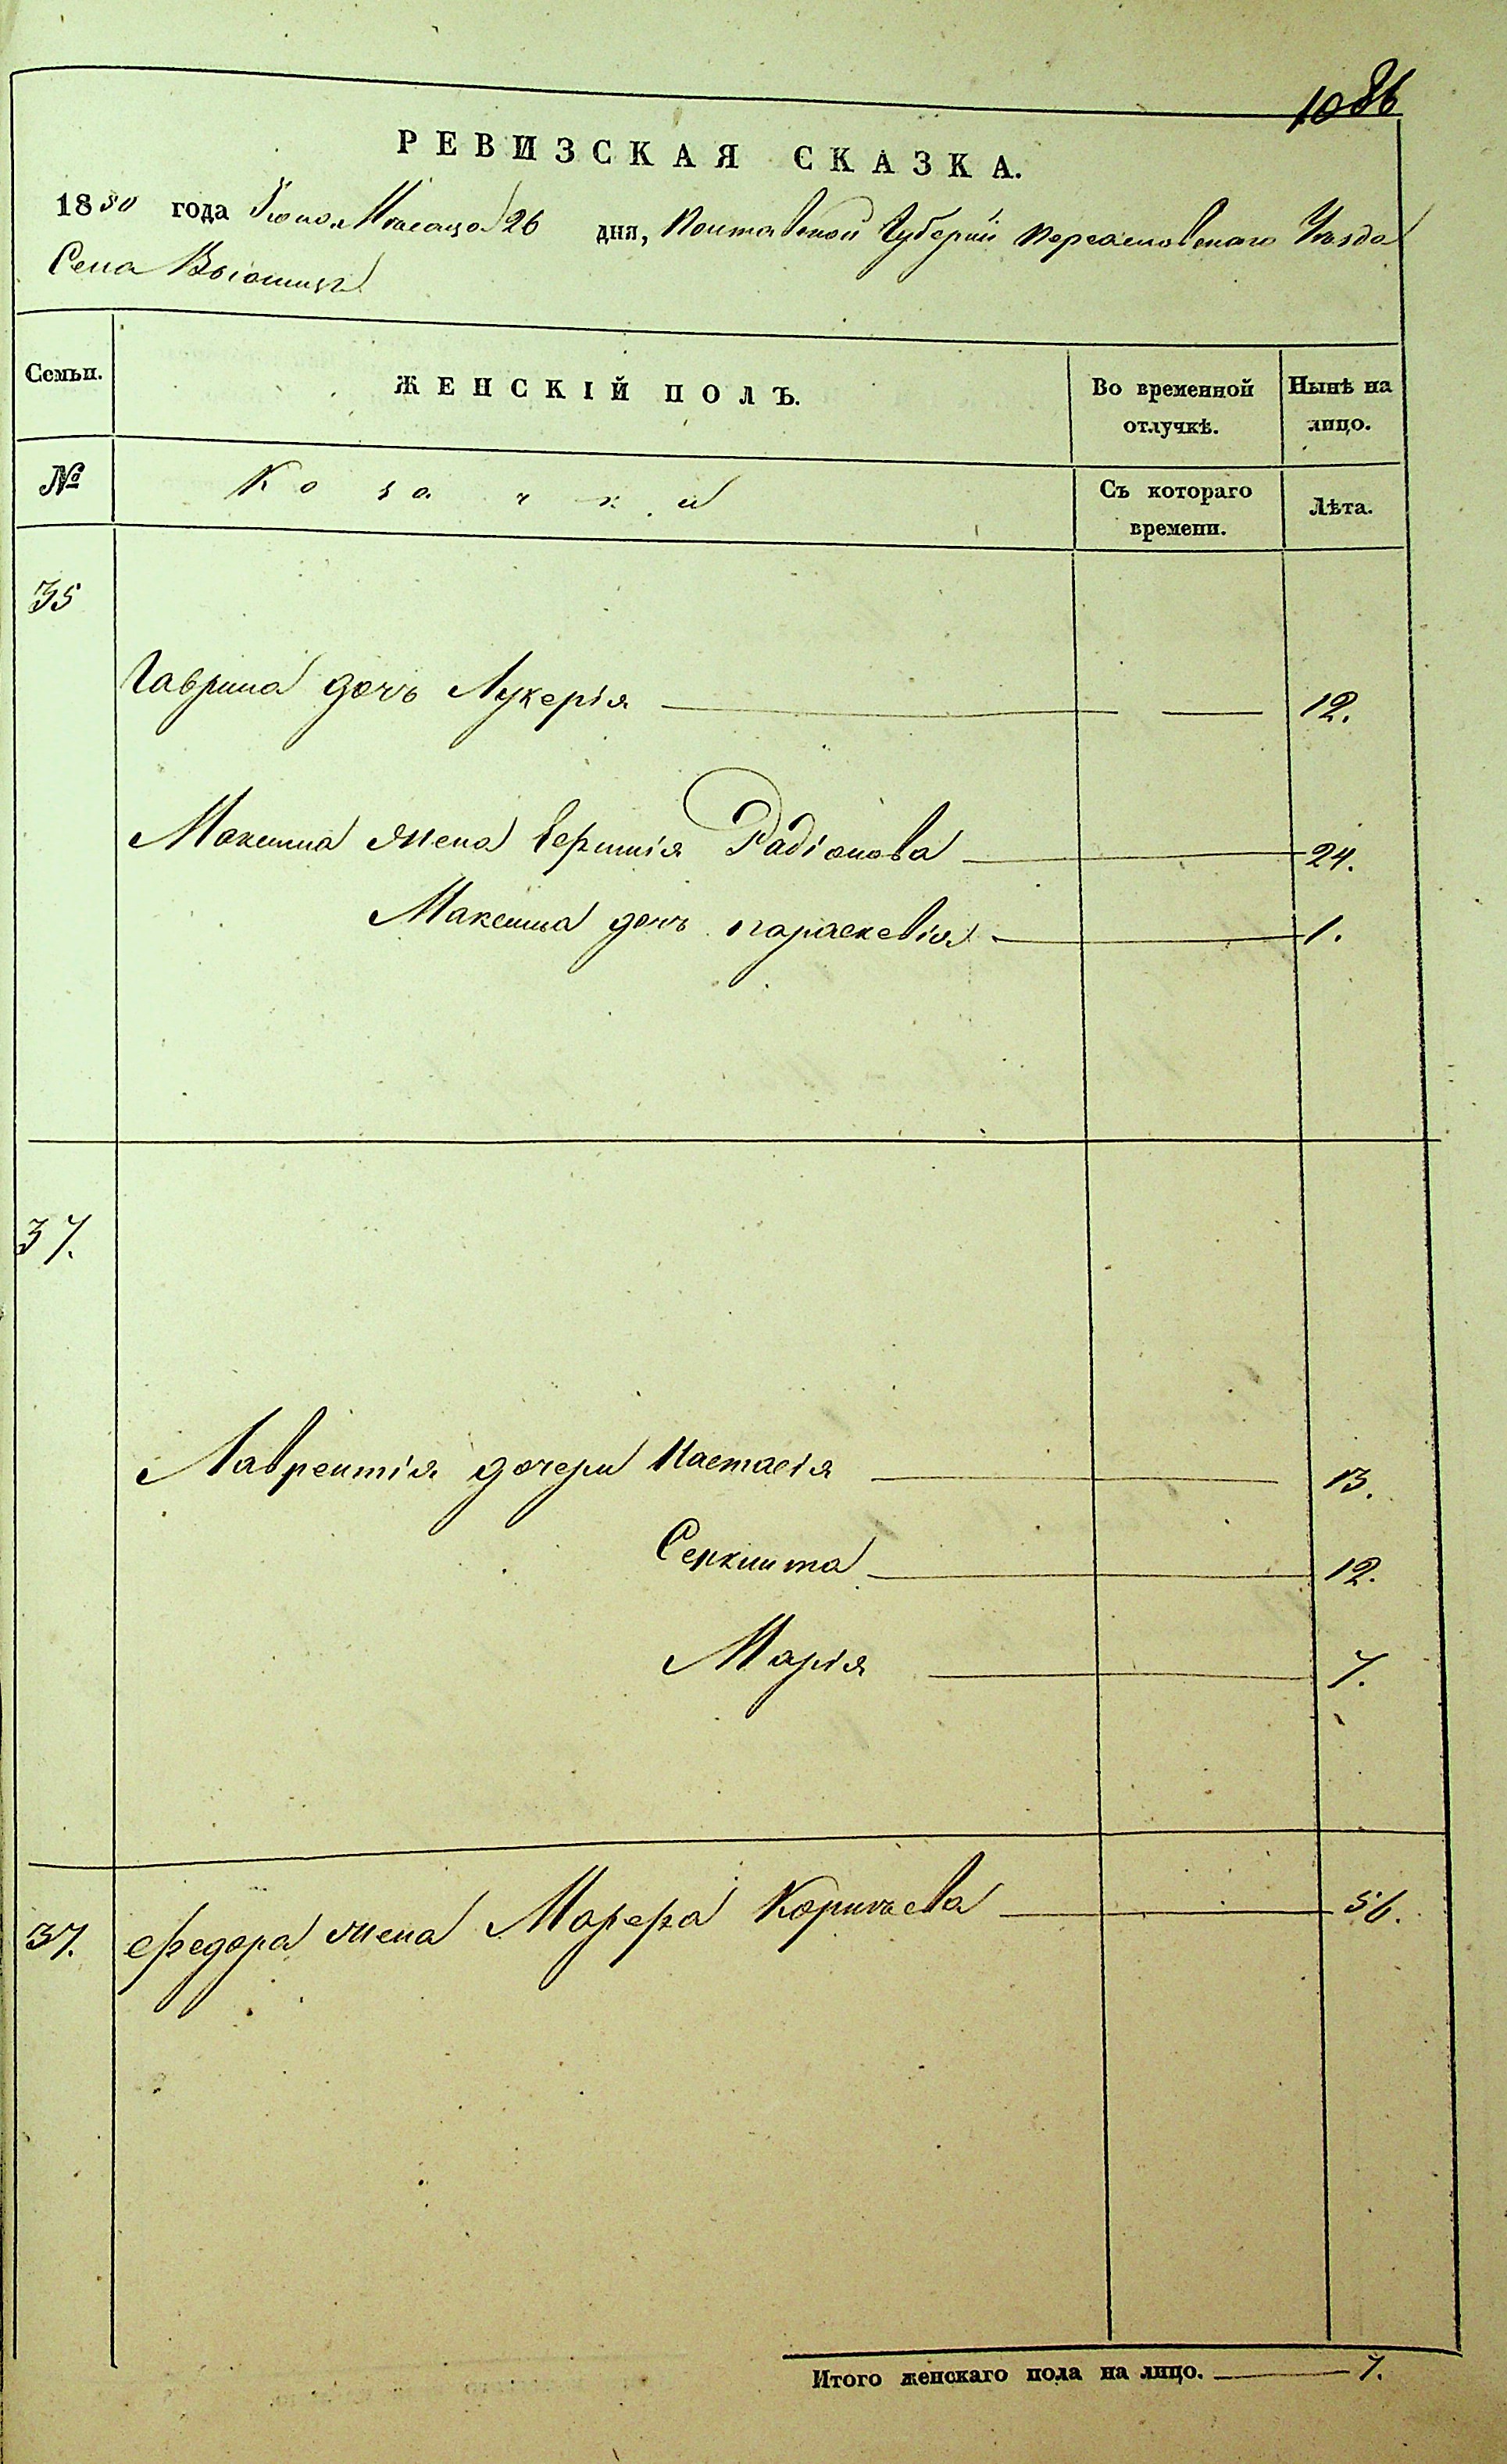 1086
РЕВИЗСКАЯ СКАЗКА.
1850 года Іюня Месяца 26 дня, Полтавской Губерніи Переяславскаго Уѣзда
Села
Семьи. ЖЕНСКІЙ ПОЛЪ. Во временной отлучкѣ. Нынѣ на лицо.
№ Козачки Съ котораго времени. Лѣта.
35
Гаврила дочь Лукерія 12.
Максима жена Радіонова 24.
Максима дочь параскевія 1.
37.
Лаврентія дочери Настасія 13.
12.
Марія 7.
37. Федора жена 56.
Итого женскаго пола на лицо. 7.